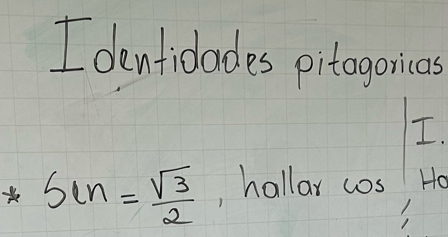 Identidades pitagoricas
I.
* Sen = √3/2, hallar cos
Ha